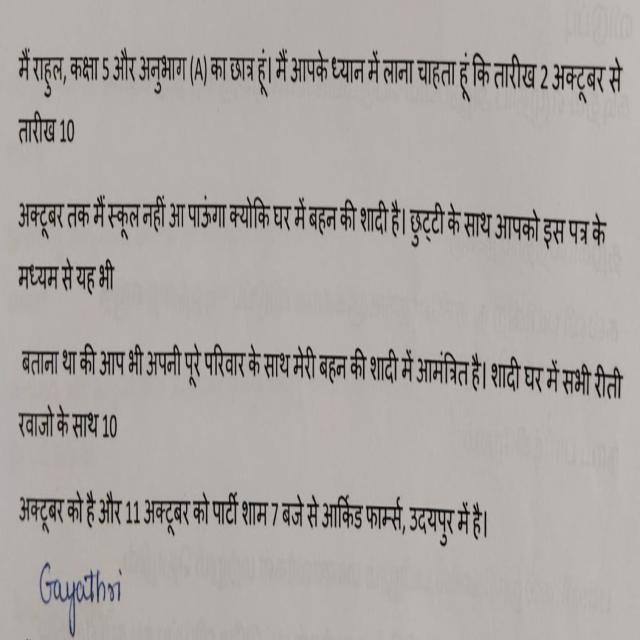 मैं राहुल, कक्षा 5 और अनुभाग (A) का छात्र हूं। मैं आपके ध्यान में लाना चाहता हूं कि तारीख 2 अक्टूबर से
तारीख 10
अक्टूबर तक मैं स्कूल नहीं आ पाऊंगा क्योकि घर में बहन की शादी है। छुट्टी के साथ आपको इस पत्र के
मध्यम से यह भी
बताना था की आप भी अपनी पूरे परिवार के साथ मेरी बहन की शादी में आमंत्रित है। शादी घर में सभी रीती
रवाजो के साथ 10
अक्टूबर को है और 11 अक्टूबर को पार्टी शाम 7 बजे से आर्किड फार्म्स, उदयपुर में है।
Gayathri